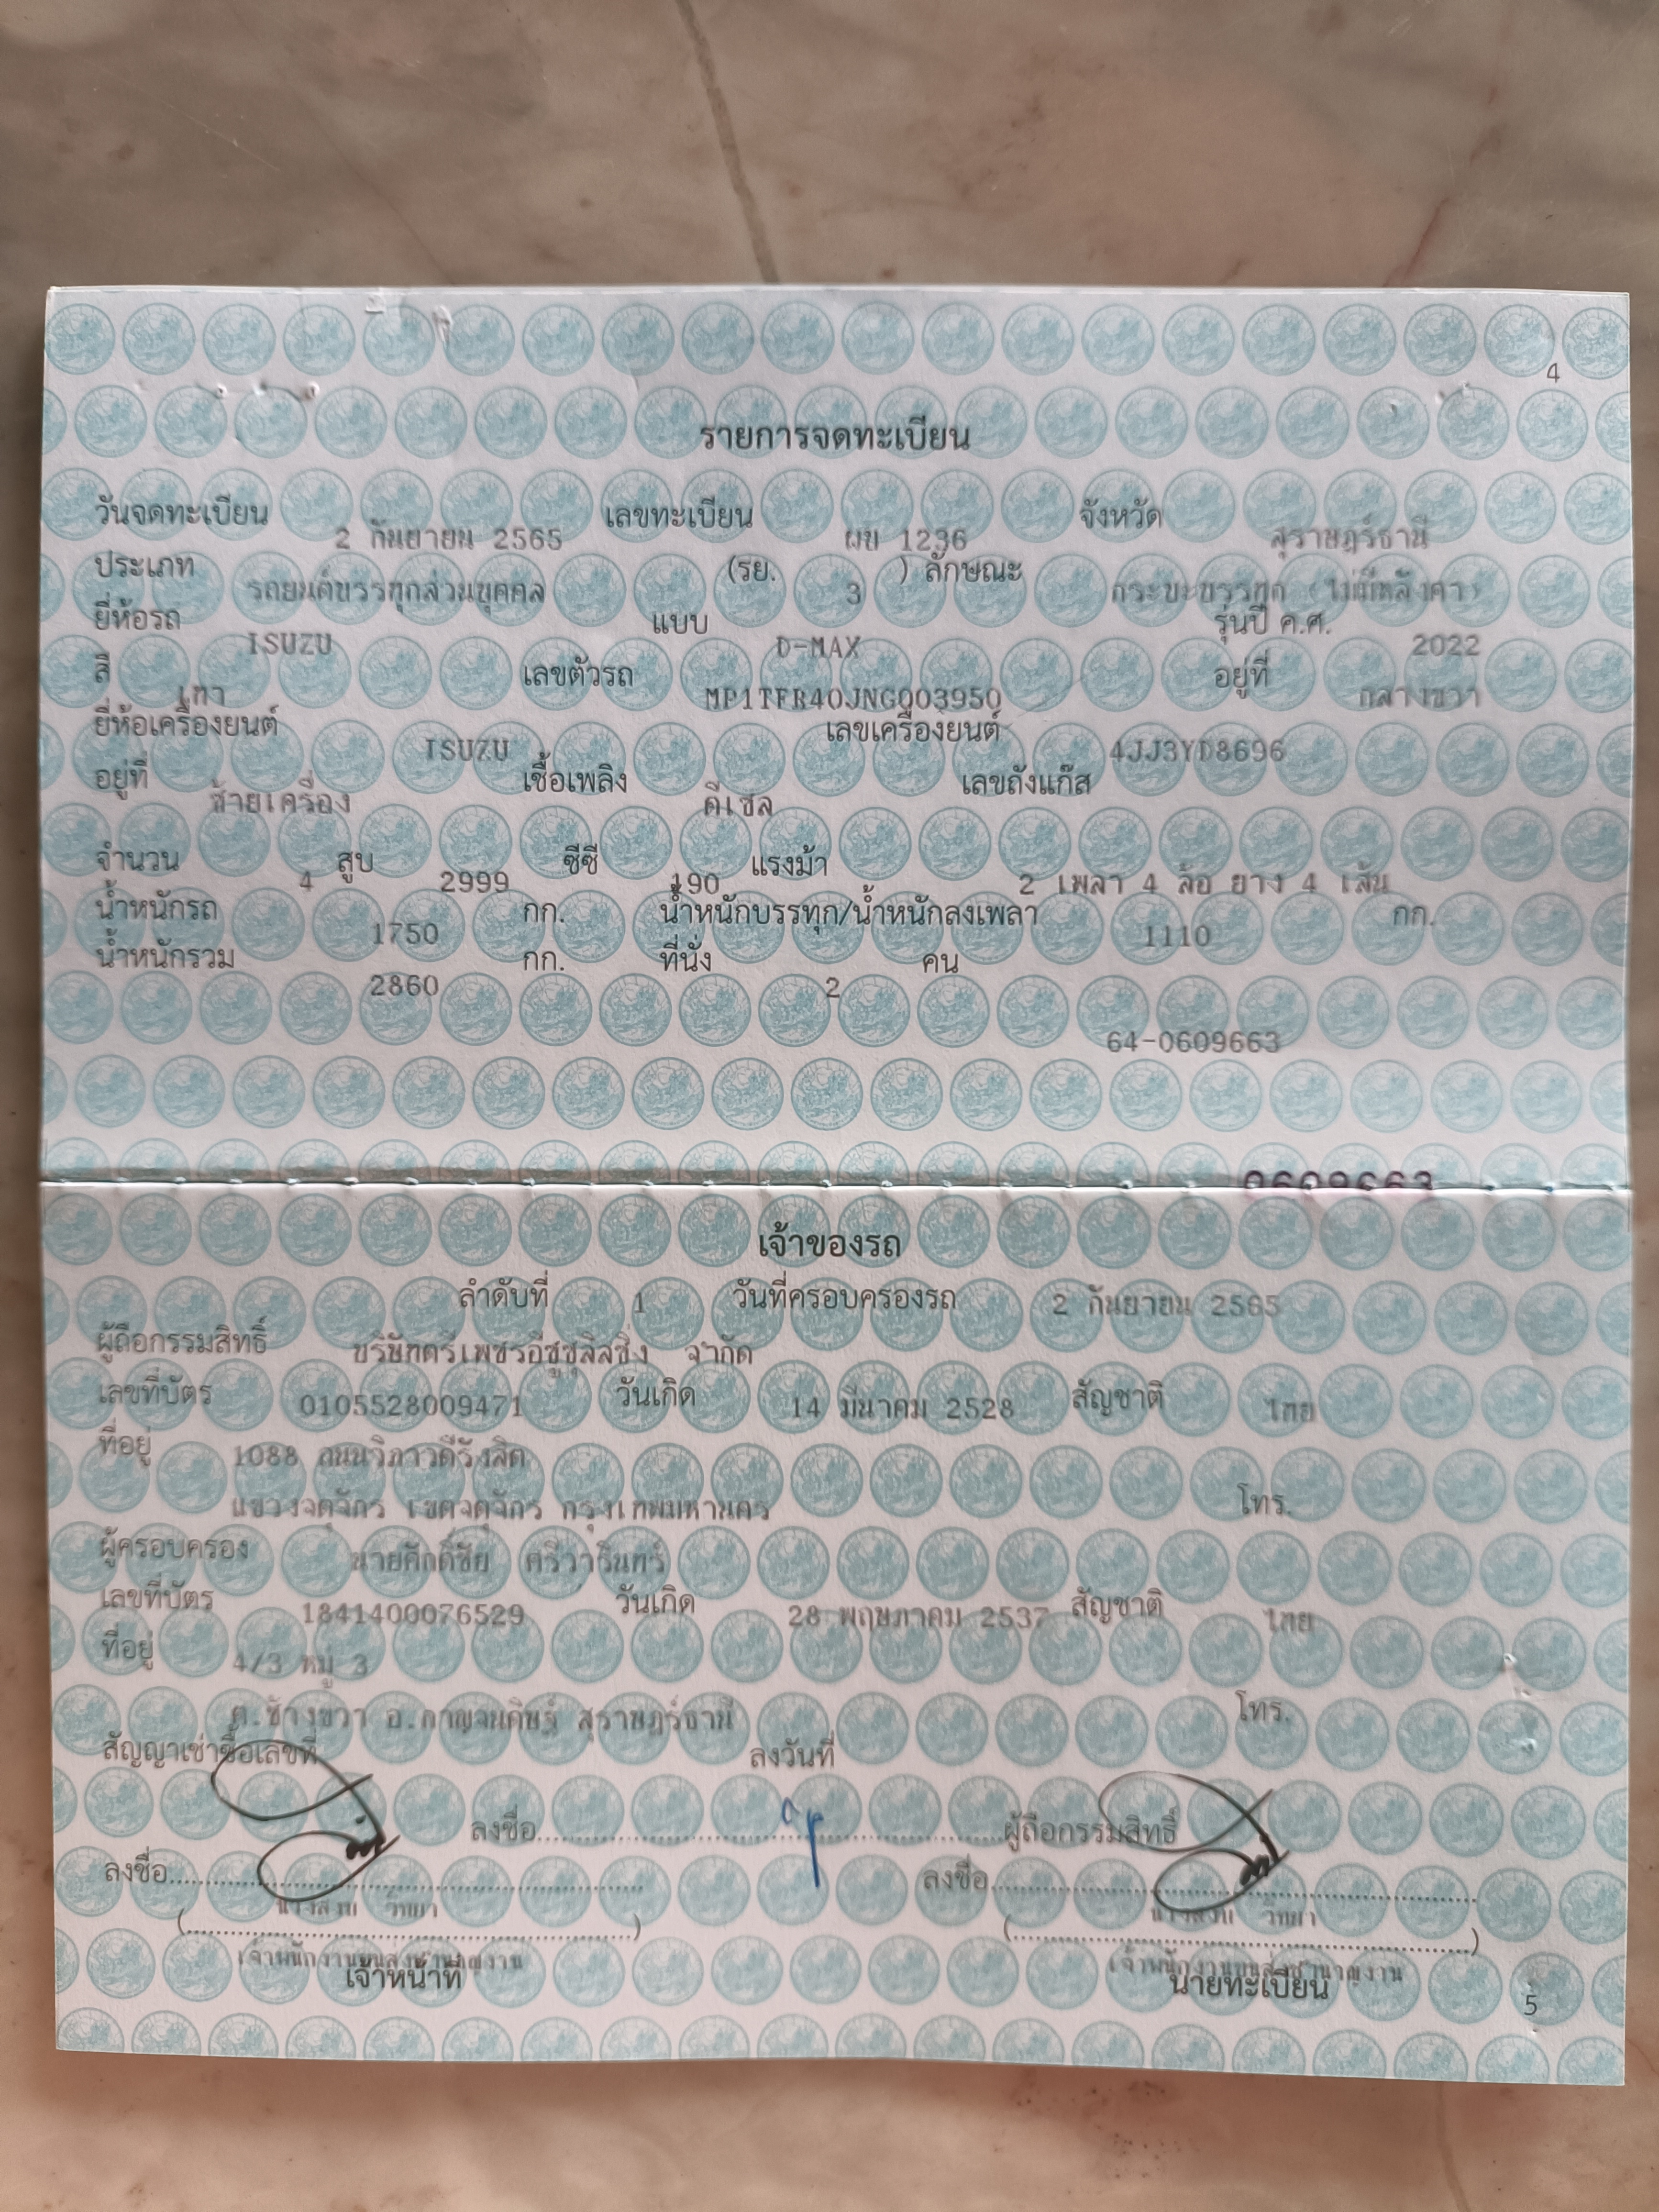 4
รายการจดทะเบียน
วันจดทะเบียน 2 กันยายน 2565 เลขทะเบียน ผข 1236 จังหวัด สุราษฎร์ธานี
ประเภท รถยนต์บรรทุกส่วนบุคคล (รย. 3 ) ลักษณะ กระบะบรรทุก (ไม่มีหลังคา)
ยี่ห้อรถ ISUZU แบบ D-MAX รุ่นปี ค.ศ. 2022
สี เทา เลขตัวรถ MP1TFR40JNG003950 อยู่ที่ กลางขวา
ยี่ห้อเครื่องยนต์ ISUZU เลขเครื่องยนต์ 4JJ3YD8696
อยู่ที่ ซ้ายเครื่อง เชื้อเพลิง ดีเซล เลขถังแก๊ส
จำนวน 4 สูบ 2999 ซีซี 190 แรงม้า 2 เพลา 4 ล้อ ยาง 4 เส้น
น้ำหนักรถ 1750 กก. น้ำหนักบรรทุก/น้ำหนักลงเพลา 1110 กก.
น้ำหนักรวม 2860 กก. ที่นั่ง 2 คน
64-0609663
0609663
เจ้าของรถ
ลำดับที่ 1 วันที่ครอบครองรถ 2 กันยายน 2565
ผู้ถือกรรมสิทธิ์ บริษัทตรีเพชรอีซูซุลิสซิ่ง จำกัด
เลขที่บัตร 0105528009471 วันเกิด 14 มีนาคม 2528 สัญชาติ ไทย
ที่อยู่ 1088 ถนนวิภาวดีรังสิต
แขวงจตุจักร เขตจตุจักร กรุงเทพมหานคร โทร.
ผู้ครอบครอง นายศักดิ์ชัย ศรีวารินทร์
เลขที่บัตร 1841400076529 วันเกิด 28 พฤษภาคม 2537 สัญชาติ ไทย
ที่อยู่ 4/3 หมู่ 3
ต.ช้างขวา อ.กาญจนดิษฐ์ สุราษฎร์ธานี โทร.
สัญญาเช่าซื้อเลขที่ ลงวันที่
ลงชื่อ ผู้ถือกรรมสิทธิ์
ลงชื่อ ลงชื่อ
เจ้าพนักงานขนส่งชำนาญงาน เจ้าพนักงานขนส่งชำนาญงาน
เจ้าหน้าที่ นายทะเบียน
5